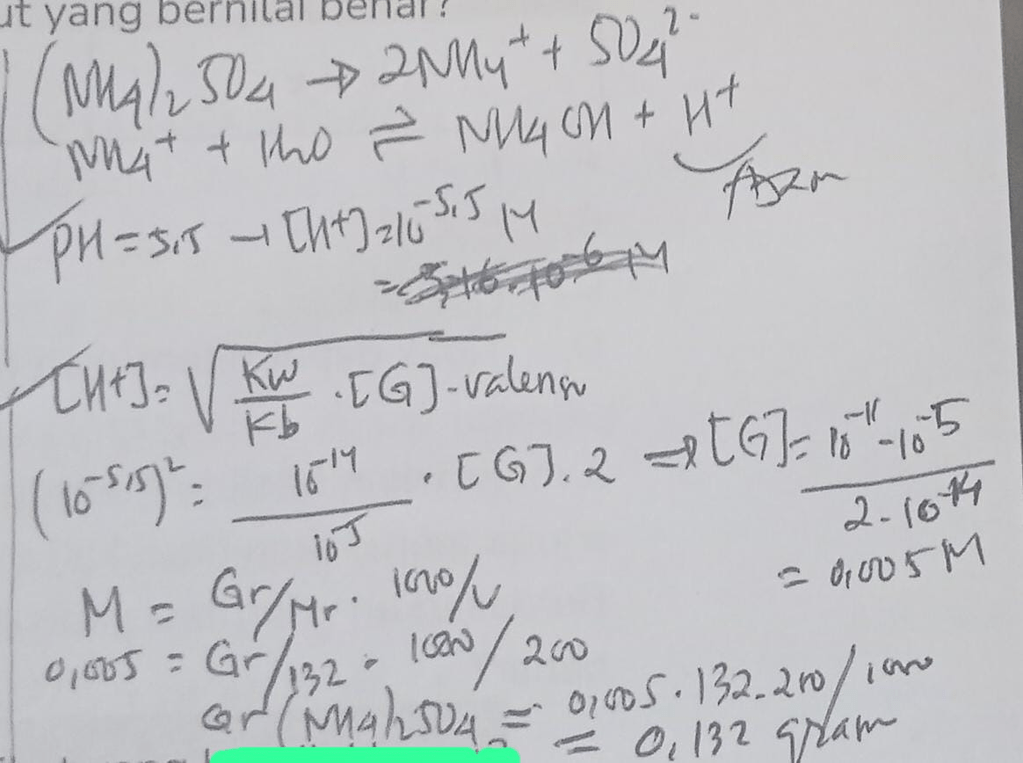 ut yang bernilai benar?
(NH4)2 SO4 → 2NH4+ + SO4 2-
NH4+ + H2O ⇌ NH4OH + H+
Asam
PH = 5,5 → [H+] = 10^-5,5 M
= 3,16.10^-6 M
[H+] = √ Kw/Kb . [G] . valensi
(10^-5,5)^2 = 10^-14/10^-5 . [G] . 2 → [G] = 10^-11 . 10^-5 / 2 . 10^-14
= 0,005 M
M = Gr/Mr . 1000/V
0,005 = Gr/132 . 1000/200
Gr (NH4)2SO4 = 0,005 . 132 . 200/1000
= 0,132 gram